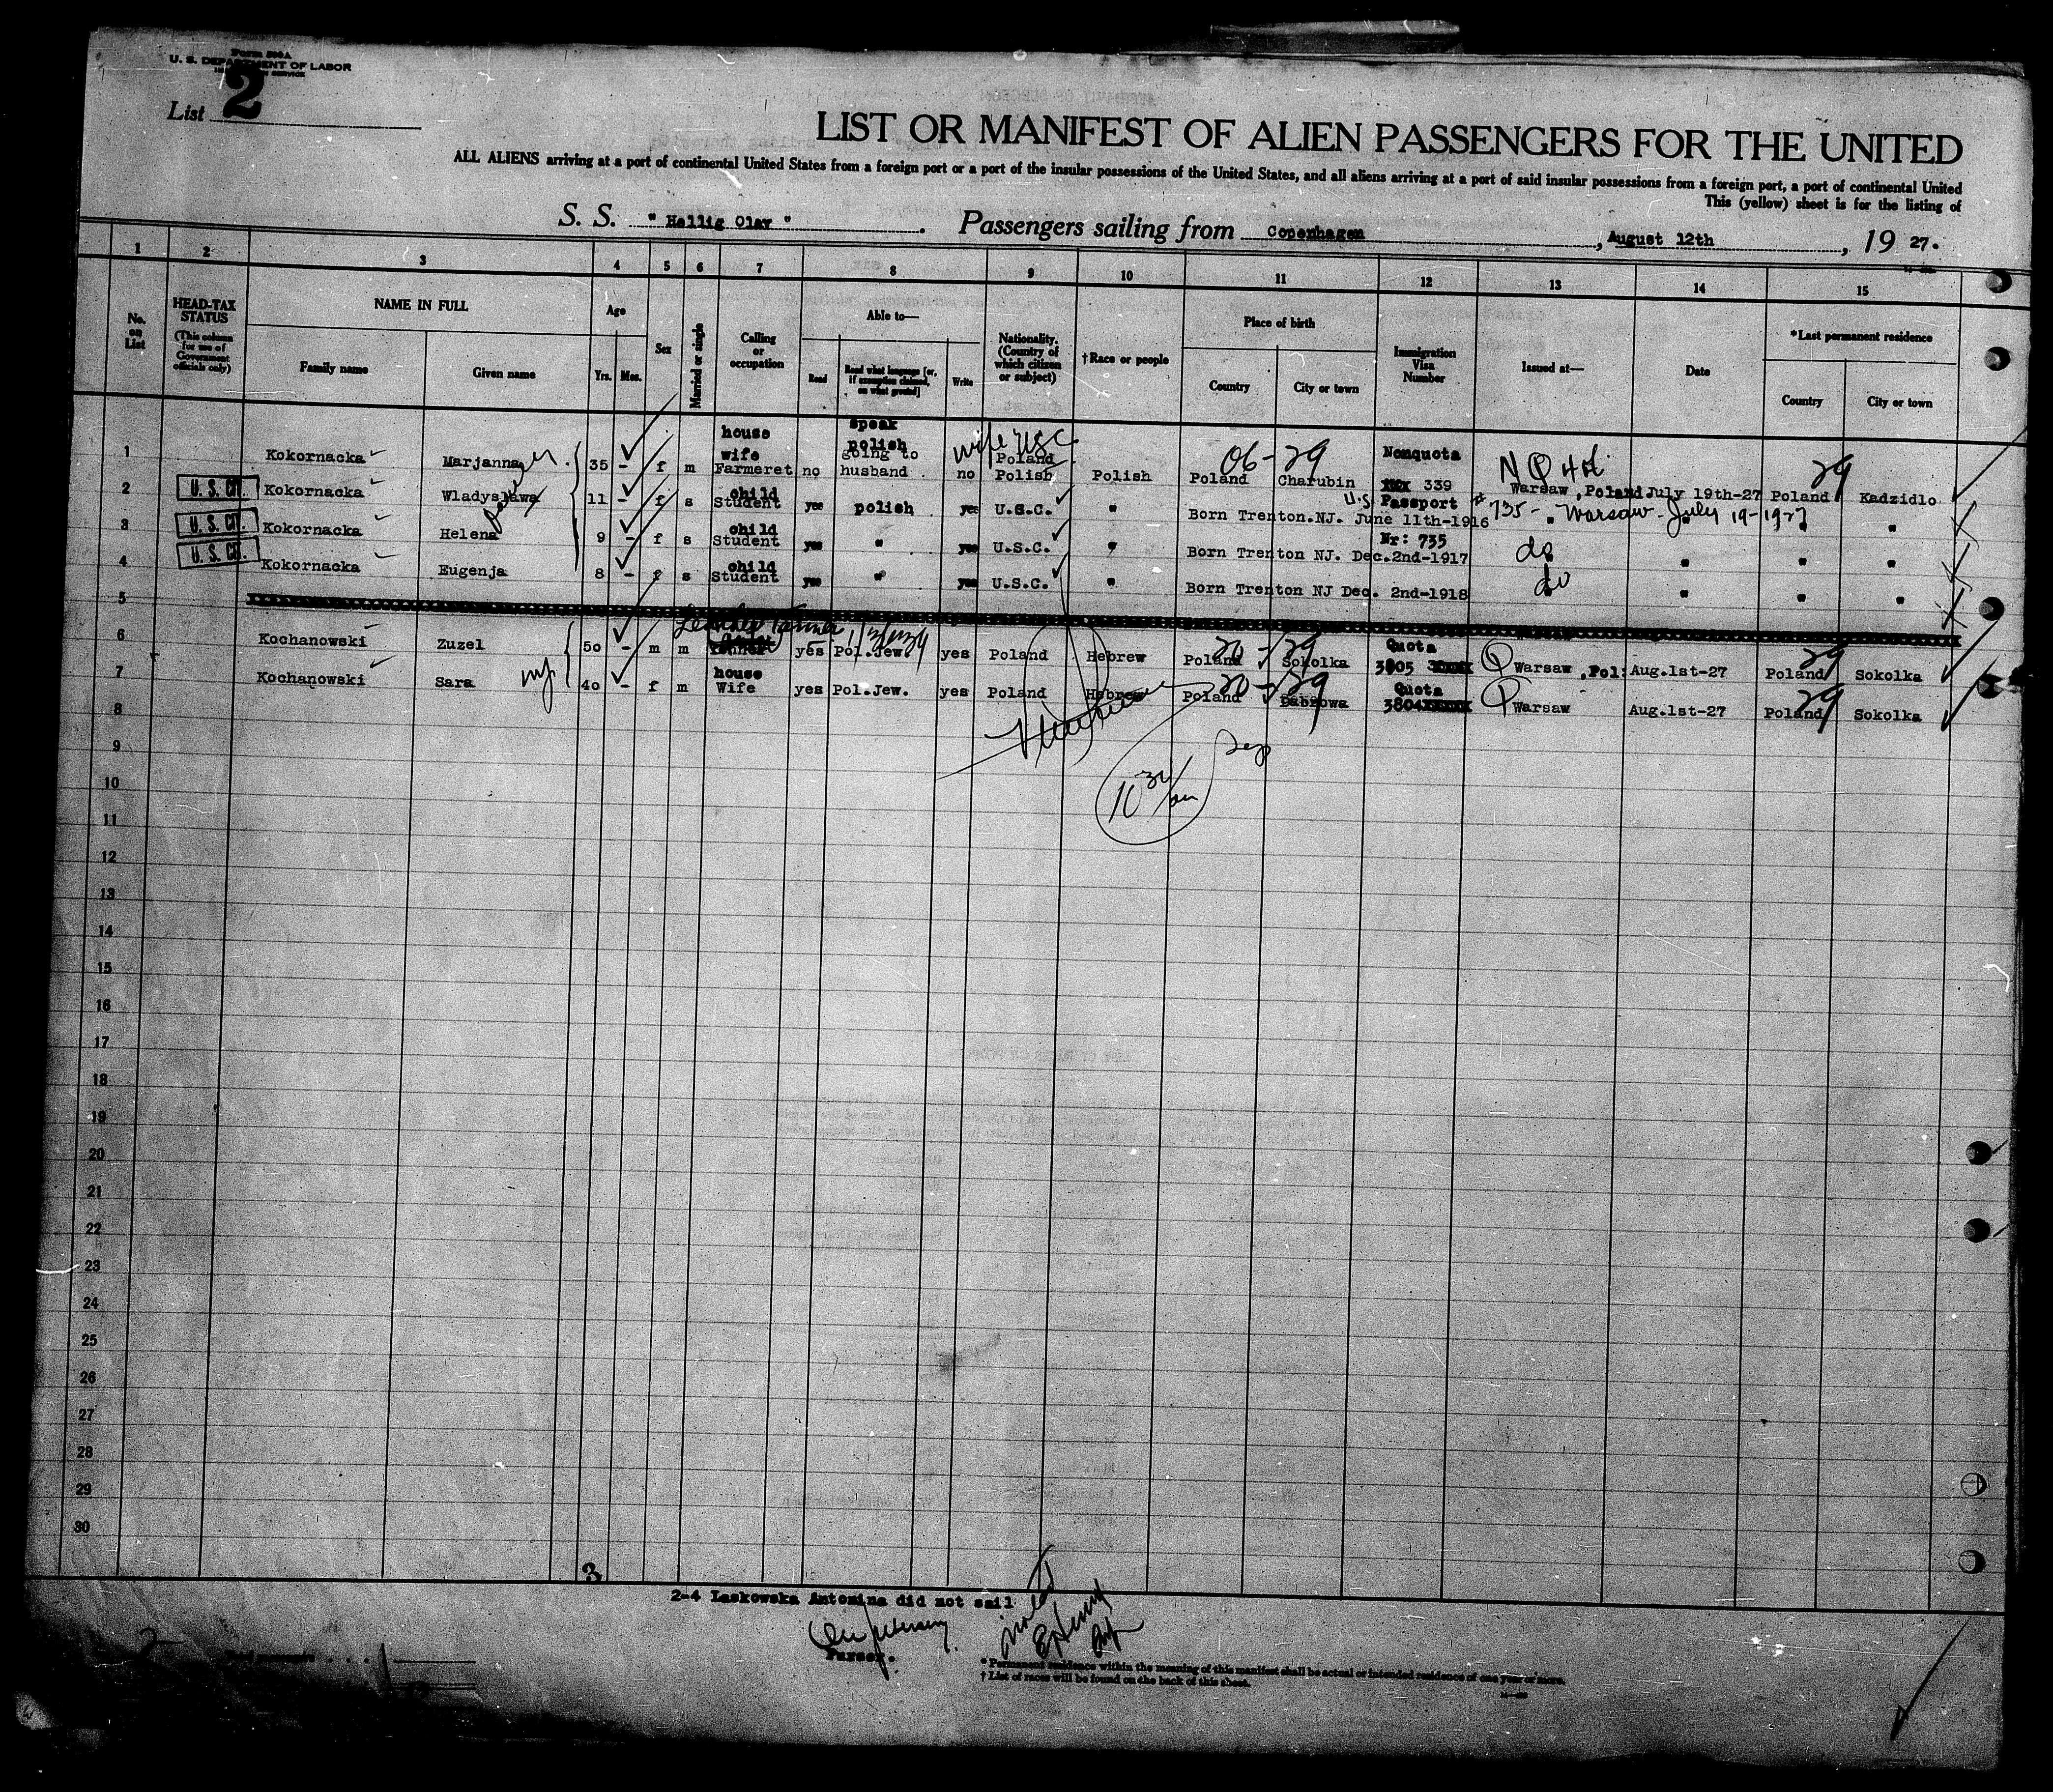 Form 500A
U. S. DEPARTMENT OF LABOR
List 2
LIST OR MANIFEST OF ALIEN PASSENGERS FOR THE UNITED
ALL ALIENS arriving at a port of continental United States from a foreign port or a port of the insular possessions of the United States, and all aliens arriving at a port of said insular possessions from a foreign port, a port of continental United
This (yellow) sheet is for the listing of
S. S. "Hellig Olav". Passengers sailing from Copenhagen, August 12th, 19 27.
1 2 3 4 5 6 7 8 9 10 11 12 13 14 15
No. on List
HEAD-TAX STATUS (This column for use of Government officials only)
NAME IN FULL
Family name Given name
Age Yrs. Mos.
Sex
Married or single
Calling or occupation
Able to—
Read Read what language [or, if exemption claimed, on what ground] Write
Nationality. (Country of which citizen or subject)
†Race or people
Place of birth
Country City or town
Immigration Visa Number
Issued at—
Date
*Last permanent residence
Country City or town
1 Kokornacka Marjanna 35 - f m house wife Farmeret no speak polish going to husband no wife USC Poland Polish Polish Poland 06-29 Charubin Nonquota 339 NQ Warsaw, Poland July 19th-27 Poland 29 Kadzidlo
2 U. S. CIT. Kokornacka Wladyslawa 11 - f s child Student yes polish yes U.S.C. " Born Trenton.NJ. June 11th-1916 U.S. Passport # 735- Warsaw- July 19-1927 " " "
3 U. S. CIT. Kokornacka Helena 9 - f s child Student yes " yes U.S.C. " Born Trenton NJ. Dec.2nd-1917 Nr: 735 do " " "
4 U. S. CIT. Kokornacka Eugenja 8 - f s child Student yes " yes U.S.C. " Born Trenton NJ Dec. 2nd-1918 do " " "
5
6 Kochanowski Zuzel 50 - m m Leather Tanner yes Pol.Jew. yes Poland Hebrew Poland 20-29 Sokolka Quota 3805 Q Warsaw, Pol: Aug.1st-27 Poland 29 Sokolka
7 Kochanowski Sara 40 - f m house Wife yes Pol.Jew. yes Poland Hebrew Poland 20-29 Dabrowa Quota 3804 Q Warsaw Aug.1st-27 Poland 29 Sokolka
8
9
10
11
12
13
14
15
16
17
18
19
20
21
22
23
24
25
26
27
28
29
30
3
2-4 Laskowska Antonina did not sail
Purser.
* Permanent residence within the meaning of this manifest shall be actual or intended residence of one year or more.
† List of races will be found on the back of this sheet.